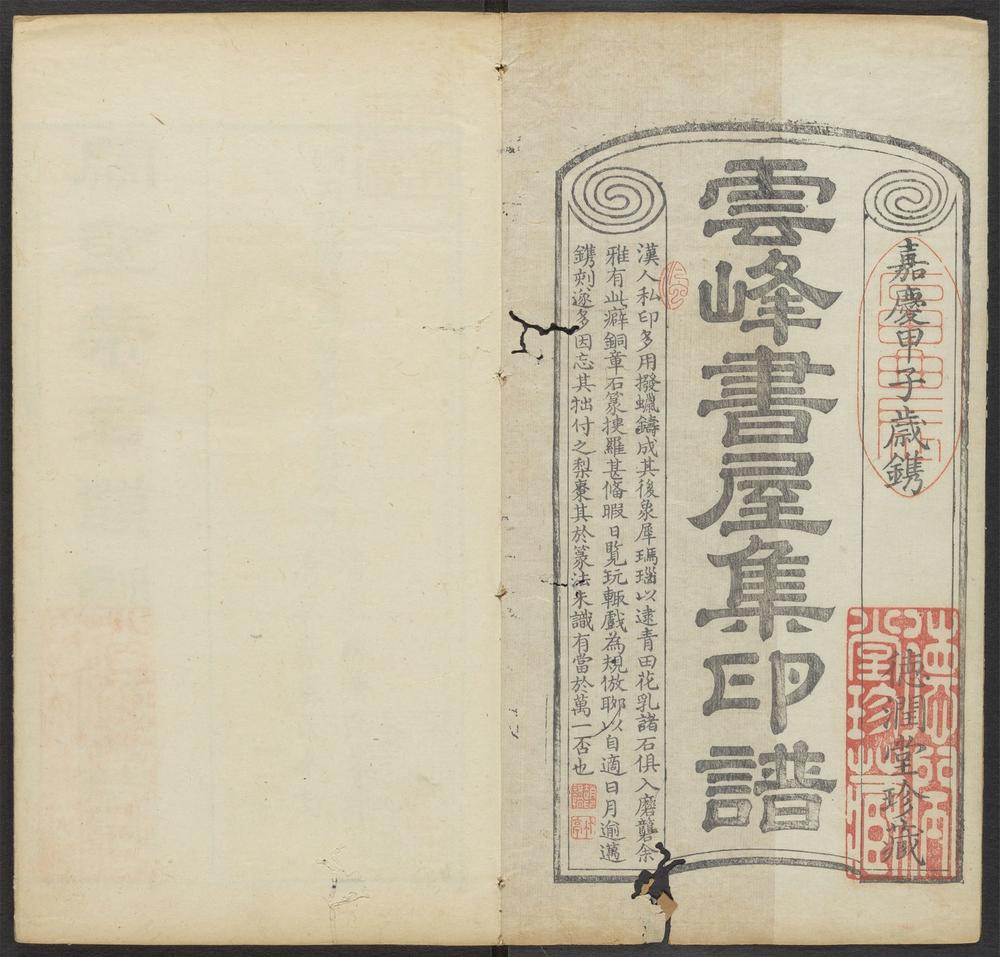 嘉慶甲子歲鐫
德潤堂珍藏
雲峰書屋集印譜
漢人私印多用撥蠟鑄成其後象犀瑪瑙以逮青田花乳諸石俱入磨礱余
雅有此癖銅章石篆搜羅甚俻暇日覽玩輒戲為規倣聊以自適日月逾邁
鐫刻遂多因忘其拙付之梨棗其於篆法未識有當於萬一否也